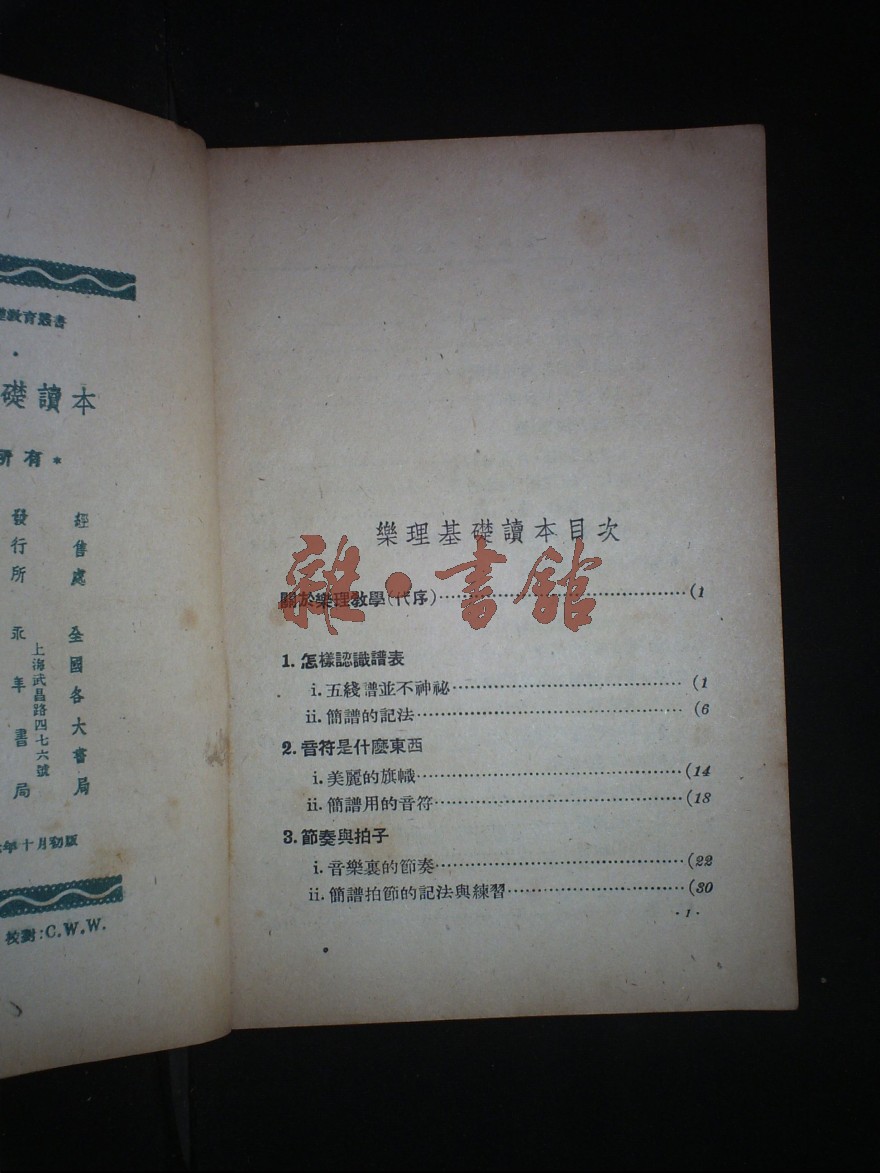 教育叢書
礎讀本
所有*
經售處 全國各大書局
發行所 永年書局
上海武昌路四七六號
年十月初版
校對:C.W.W.
樂理基礎讀本目次
雜·書館
關於樂理教學(代序)……………………(1
1. 怎樣認識譜表
i. 五綫譜並不神祕……………………(1
ii. 簡譜的記法……………………(6
2. 音符是什麼東西
i. 美麗的旗幟……………………(14
ii. 簡譜用的音符……………………(18
3. 節奏與拍子
i. 音樂裏的節奏……………………(22
ii. 簡譜拍節的記法與練習……………………(30
·1·